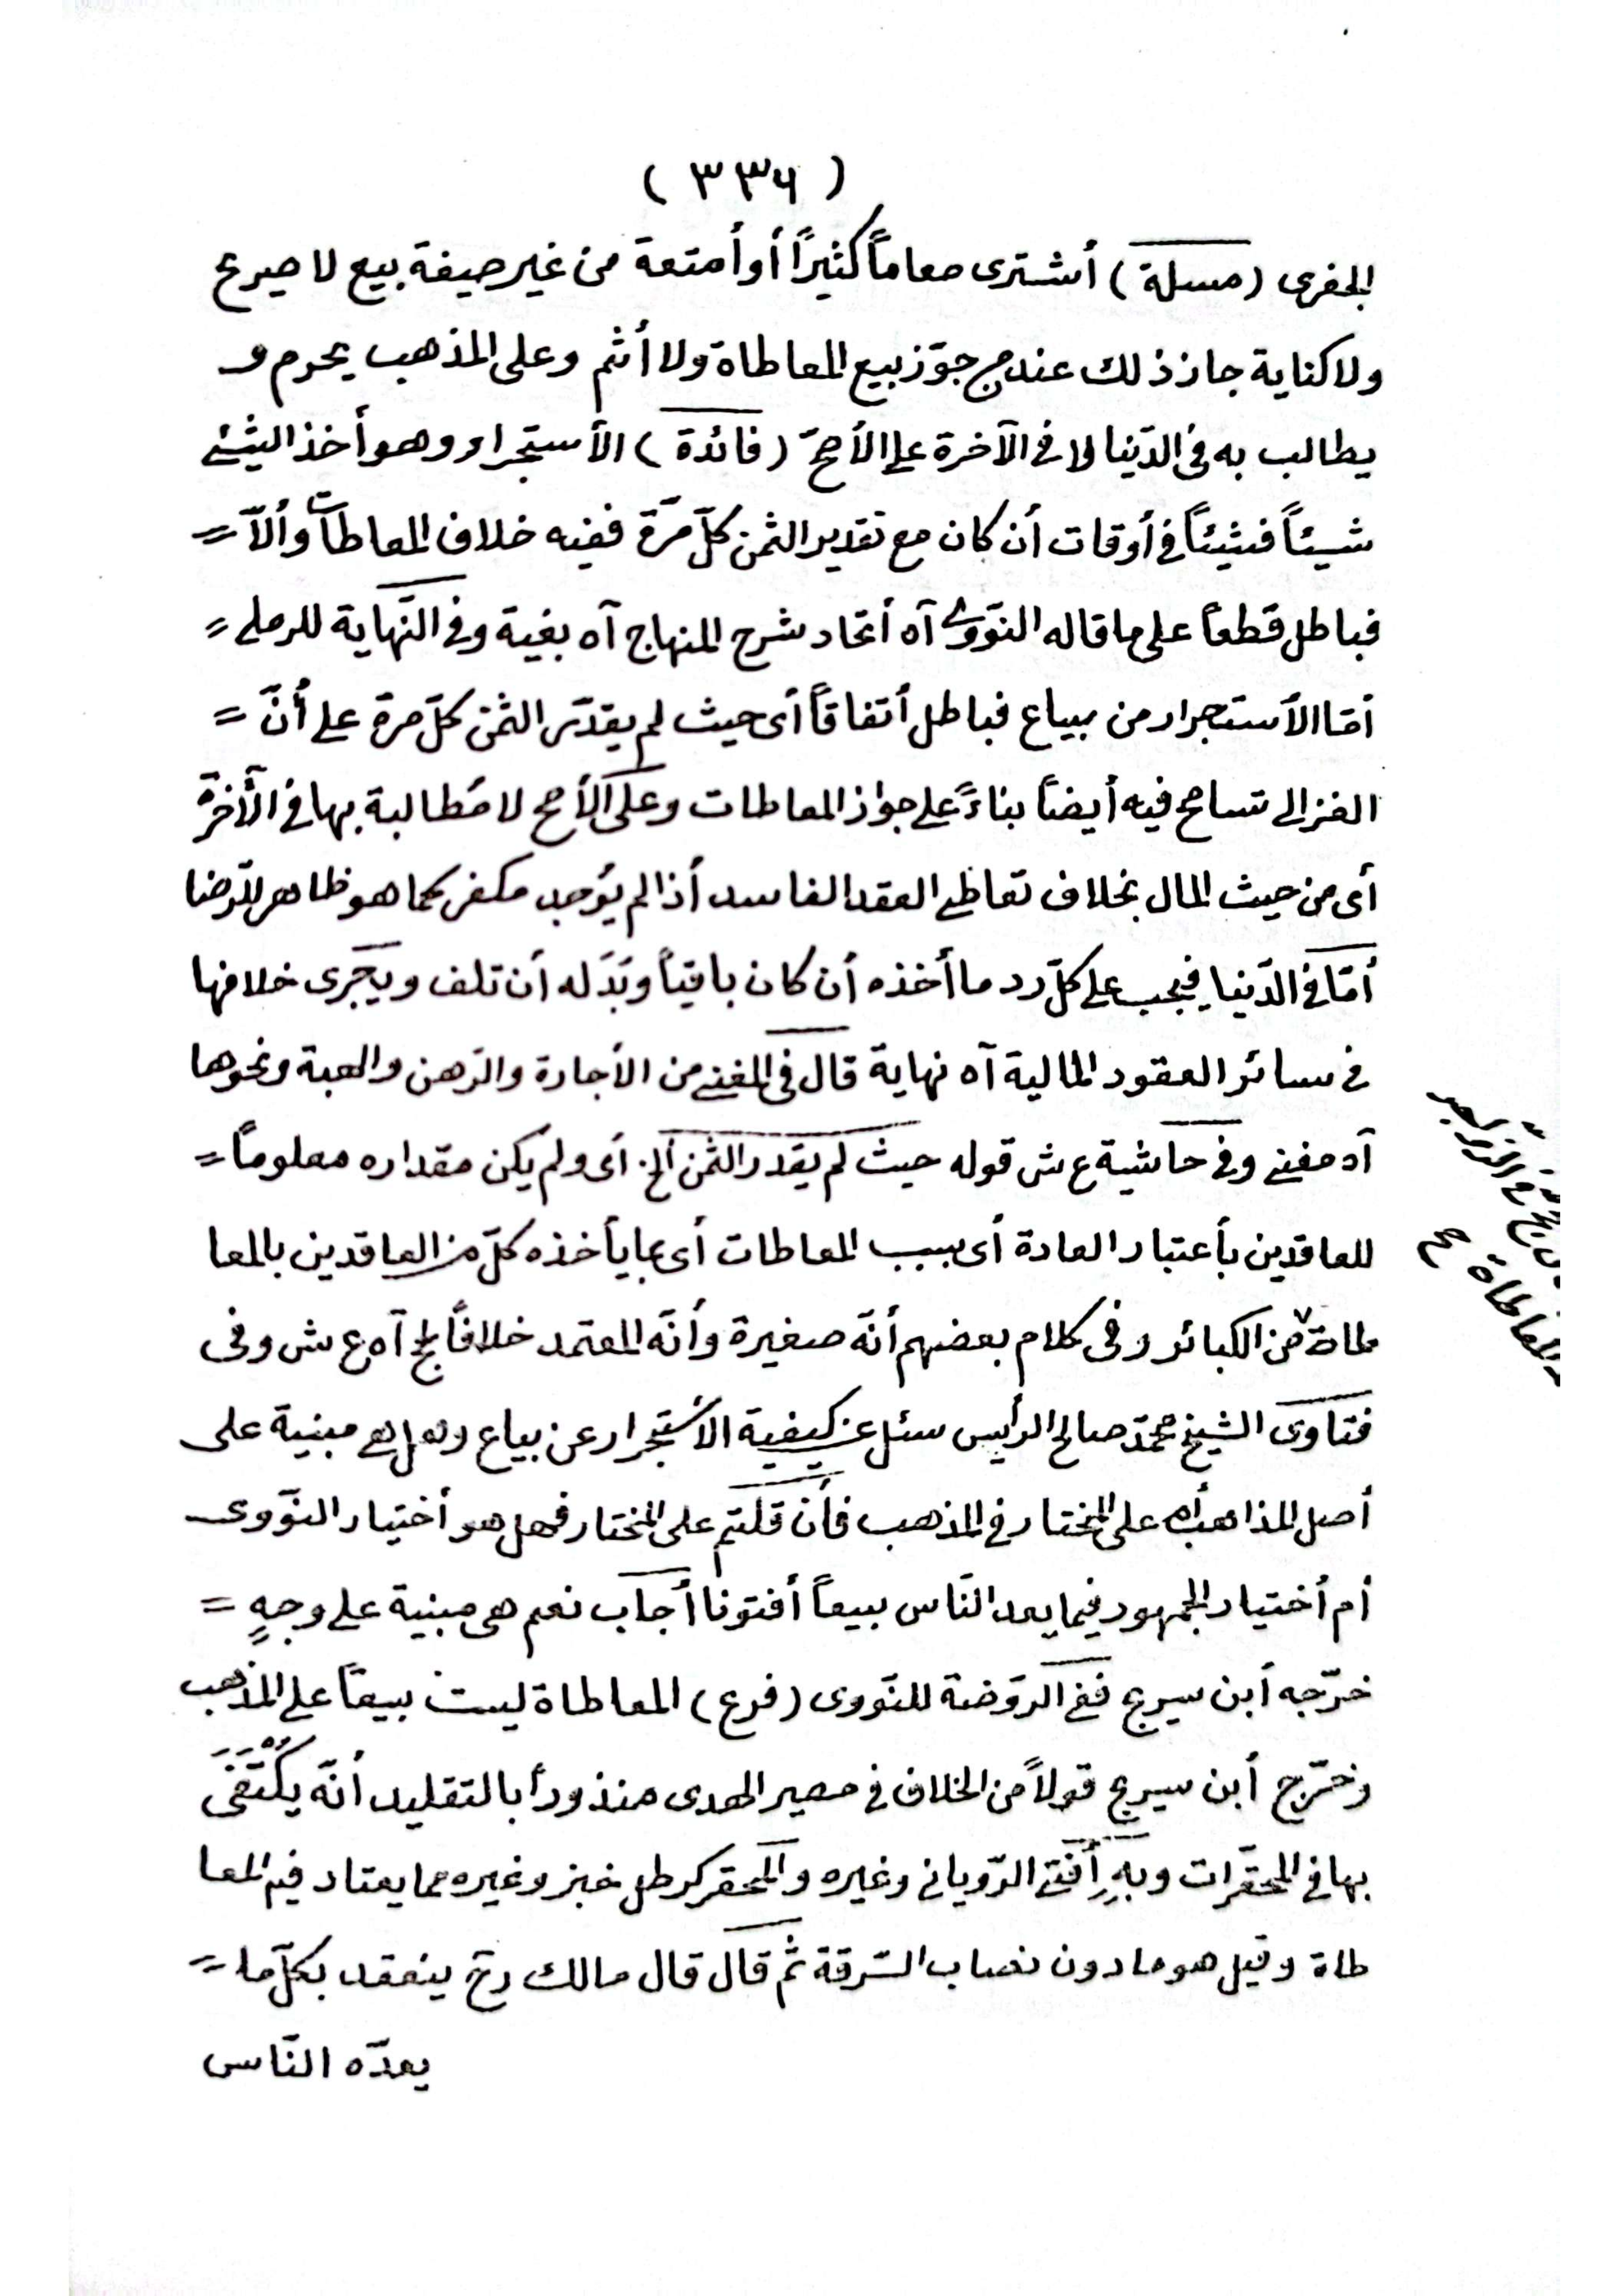 ( ٣٣٦ )
الجفرى (مسلة) أشترى معاماً كثيراً أو أمتعة من غير صيغة بيع لا صيرع
ولا كناية جاز ذلك عند من جوّز بيع المعاطاة ولا أثم وعلى المذهب يحرم و
يطالب به فى الدّنيا لا فى الآخرة على الأصحّ (فائدة) الأستجرار وهو أخذ الشئ
شيئاً فشيئاً فى أوقات أن كان مع تقدير الثمن كلّ مرّة ففيه خلاف المعاطات وألاّ =
فباطل قطعاً على ما قاله النّووى آه أتحاد شرح المنهاج آه بغية وفى النّهاية للرملى =
أمّا الأستجرار من بياع فباطل أتفاقاً أى حيث لم يقدّر الثمن كلّ مرة على أنّ =
الغزالى تسامح فيه أيضاً بناءً على جواز المعاطات وعلى الأصح لا مُطالبة بها فى الآخرة
أى من حيث المال بخلاف تعاطى العقد الفاسد أذا لم يوجد مكفر كما هو ظاهر للرّضا
أمّا فى الدّنيا فيجب على كلّ رد ما أخذه أن كان باقياً وبَدَله أن تلف ويجرى خلافها
فى سائر العقود المالية آه نهاية قال فى المغنى من الأجارة والرّهن والهبة ونحوها
آه مغنى وفى حاشية ع ش قوله حيث لم يقدر الثمن ألخ أى ولم يكن مقداره معلوماً =
للعاقدين بأعتبار العادة أى بسبب المعاطات أى بما يأخذه كلّ من العاقدين بالمعا
طاة من الكبائر وفى كلام بعضهم أنّه صغيرة وأنّه المعتمد خلافاً لج آه ع ش وفى
فتاوى الشيخ محمّد صالح الرأيس سئل عن كيفية الأستجرار عن بياع وهل هى مبنية على
أصل المذاهب أم على المختار فى المذهب فأن قلتم على المختار فهل هو أختيار النّووى
أم أختيار الجمهور فيما يعد النّاس بيعاً أفتونا أجاب نعم هى مبنية على وجهٍ =
خرّجه أبن سيرج ففى الرّوضة للنّووى (فرع) المعاطاة ليست بيعاً على المذهب
وخرّج أبن سيرج قولاً من الخلاف فى مصير الهدى منذوراً بالتقليد أنّه يكْتَفَى
بها فى المحقّرات وبهِ أفتى الرّويانى وغيره والمحقر كرطل خبز وغيره مما يعتاد فيه المعا
طاة وقيل هو ما دون نصاب السّرقة ثمّ قال قال مالك رح ينعقد بكلّ ما =
يعدّه النّاس